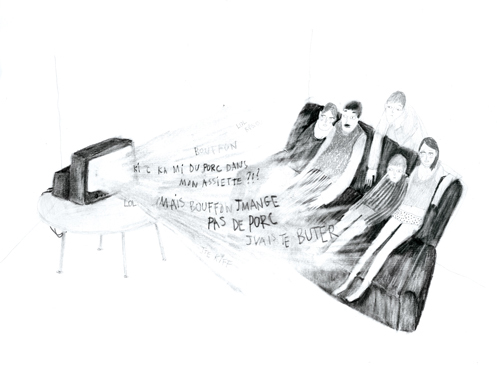 BOUFFON
KI C KA MI DU PORC DANS
MON ASSIETTE ?!?
MAIS BOUFFON JMANGE
PAS DE PORC
JVAIS TE BUTER